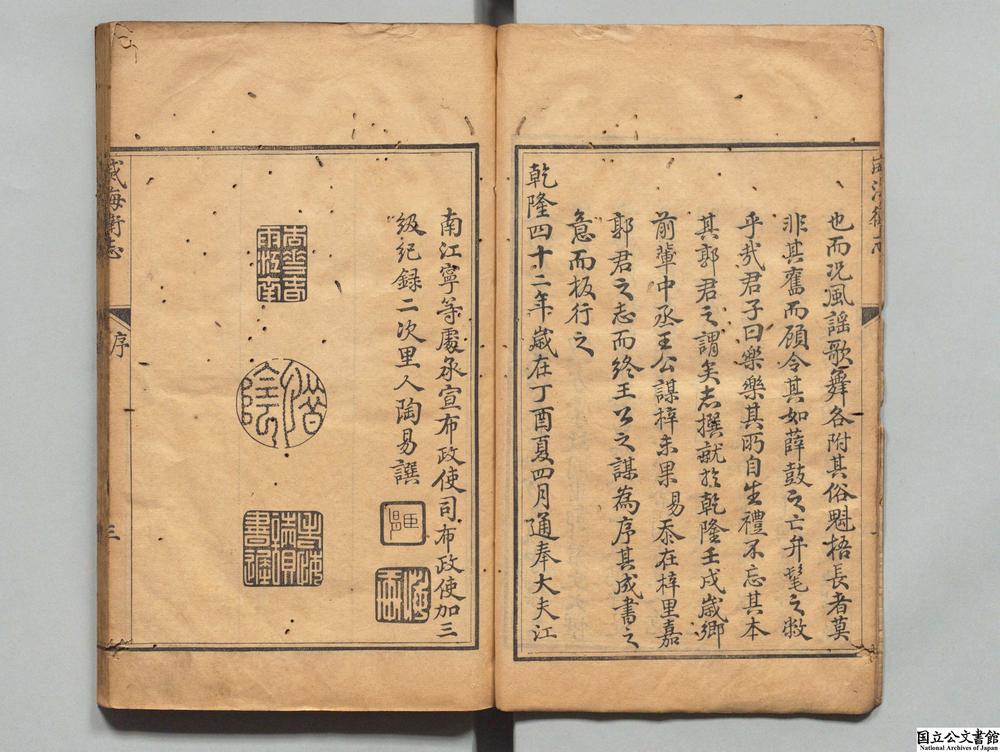 也而況風謠歌舞各附其俗魁梧長者莫
非其舊而顧令其如薛鼓之亡弁髦之敝
乎哉君子曰樂樂其所自生禮不忘其本
其郭君之謂矣志撰就於乾隆壬戌歲鄉
前輩中丞王公謀梓未果易忝在梓里嘉
郭君之志而終王公之謀為序其成書之
意而板行之
乾隆四十二年歲在丁酉夏四月通奉大夫江
南江寧等處承宣布政使司布政使加三
級紀錄二次里人陶易譔
威海衛志
序
三
国立公文書館
National Archives of Japan